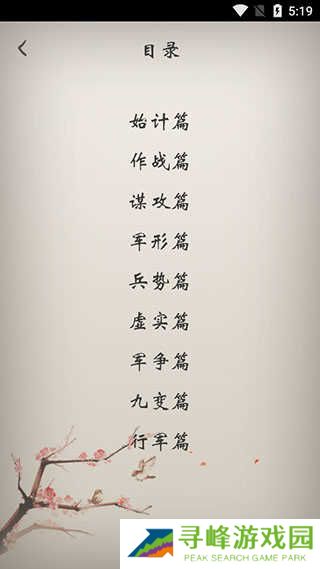 5:19
目录
始计篇
作战篇
谋攻篇
军形篇
兵势篇
虚实篇
军争篇
九变篇
行军篇
寻峰游戏园
PEAK SEARCH GAME PARK